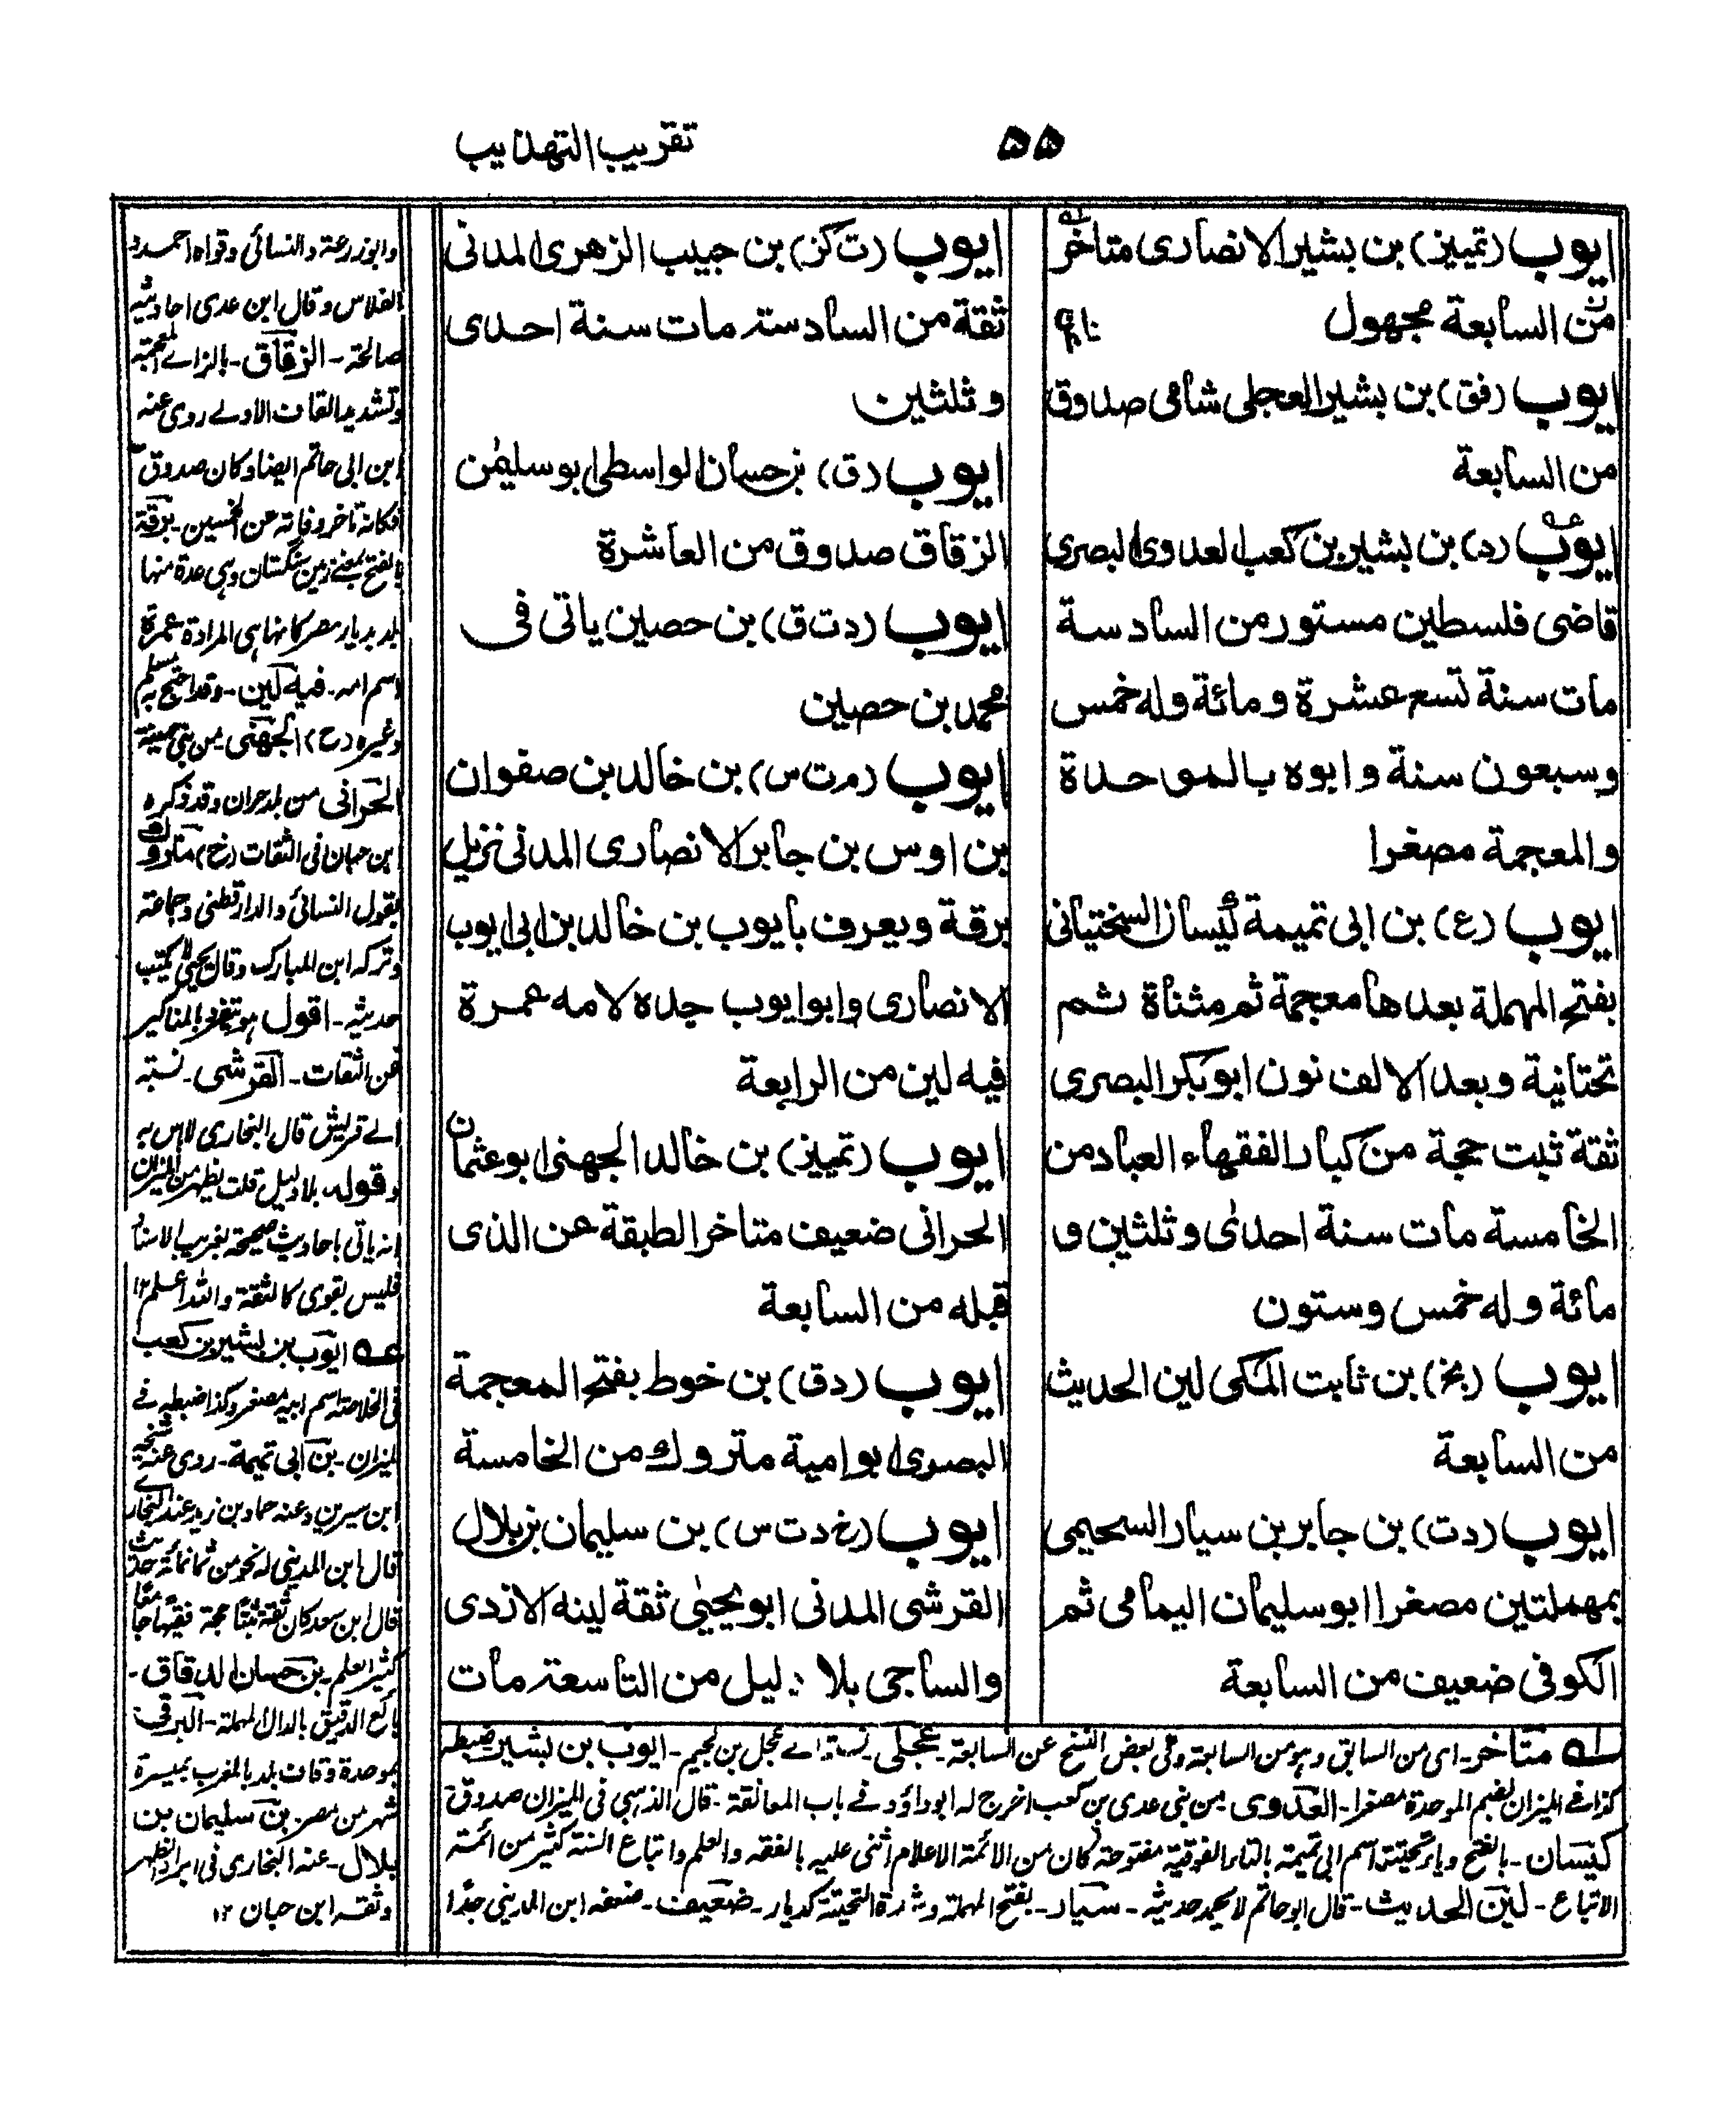 ۵۵
تقريب التهذيب
ايوب (تمييز) بن بشير الانصارى متاخر
من السابعة مجهول
ايوب (فق) بن بشير العجلى شامى صدوق
من السابعة
ايوب (د) بن بشير بن كعب العدوى البصرى
قاضى فلسطين مستور من السادسة
مات سنة تسع عشرة و مائة وله خمس
وسبعون سنة و ابوه بالموحدة
والمعجمة مصغرا
ايوب (ع) بن ابى تميمة كيسان السختيانى
بفتح المهملة بعدها معجمة ثم مثناة ثم
تحتانية وبعد الالف نون ابو بكر البصرى
ثقة ثبت حجة من كبار الفقهاء العباد من
الخامسة مات سنة احدى وثلثين و
مائة وله خمس وستون
ايوب (بخ) بن ثابت المكى لين الحديث
من السابعة
ايوب (دت) بن جابر بن سيار السحيمى
بمهملتين مصغرا ابو سليمان اليمامى ثم
الكوفى ضعيف من السابعة
ايوب (ت كن) بن حبيب الزهرى المدنى
ثقة من السادسة مات سنة احدى
و ثلثين
ايوب (ق) بن حسان الواسطى ابو سليمٰن
الزقاق صدوق من العاشرة
ايوب (دت ق) بن حصين ياتى فى
محمد بن حصين
ايوب (م ت س) بن خالد بن صفوان
بن اوس بن جابر الانصارى المدنى نزيل
برقة ويعرف بايوب بن خالد بن ابى ايوب
الانصارى وابو ايوب جده لامه عمرة
فيه لين من الرابعة
ايوب (تمييز) بن خالد الجهنى ابو عثمان
الحرانى ضعيف متاخر الطبقة عن الذى
قبله من السابعة
ايوب (دق) بن خوط بفتح المعجمة
البصرى ابو امية متروك من الخامسة
ايوب (خ د ت س) بن سليمان بن بلال
القرشى المدنى ابو يحيى ثقة لينه الازدى
والساجى بلا دليل من التاسعة مات
له متاخر - اى من السابق وهو من السابعة وفى بعض النسخ عن السابعة - عجلى - نسبة الے عجل بن لجيم - ايوب بن بشير ضبطه
كذا فے الميزان بضم الموحدة مصغرا - العدوى من بنى عدى بن كعب اخرج له ابو داؤد فے باب المعانقة - قال الذهبى فى الميزان صدوق
كيسان - بالفتح وياء تحتية اسم ابى تميمة بالتاء الفوقية مفتوحة كان من الائمة الاعلام اثنى عليه بالفقه والعلم واتباع السنة كثير من ائمة
الاتباع - لين الحديث - قال ابو حاتم لا يحمد حديثه - سيار - بفتح المهملة وشدة التحتية كديار - ضعيف - ضعفه ابن المدينى جدًا
وابو زرعة والنسائى وقواه احمد و
الفلاس وقال ابن عدى احاديثه
صالحة - الزقاق - بالزاے المعجمة
وتشديد القاف الاولے روى عنه
ابن ابى حاتم ايضا وكان صدوقا
فكانه تاخر وفاته عن الخمسين - برقة
بالفتح بمعنے زمين سنگستان وهى عدة منها
بلد بديار مصر كانها هى المرادة عمرة
اسم امه - فيه لين - وقد احتج به مسلم
وغيره (ح) الجهنى من بنى جهينة
الحرانى من بلد حران وقد ذكره
ابن حبان فى الثقات (خ) متروك
بقول النسائى والدارقطنى وجماعة
وتركه ابن المبارك وقال يحيى لا يكتب
حديثه - اقول هو يتفرد بالمناكير
عن الثقات - القرشى - نسبة
الے قريش قال البخارى لا باس به
وقوله بلا دليل قلت يظهر من الميزان
انه ياتى باحاديث صحيحة بغريب الاسناد
فليس بقوى كالثقة والله اعلم ۱۲
عه ايوب بن بشير بن كعب
فى الخلاصة اسم ابيه مصغر وكذا ضبطه فے
الميزان - بن ابى تميمة - روى عنه شيخه
ابن سيرين وعنه حماد بن زيد عند البخارے
قال ابن المدينى له نحو من ثمانمائة حديث
قال ابن سعد كان ثقة ثبتا حجة فقيها جامعًا
كثير العلم - بن حسان الدقاق -
بائع الدقيق بالدال المهملة - البرقى
بموحدة وقاف بلد بالمغرب بمسيرة
شهر من مصر - بن سليمان بن
بلال - عنه البخارى فى ابراد الظهر
وثقه ابن حبان ۱۲